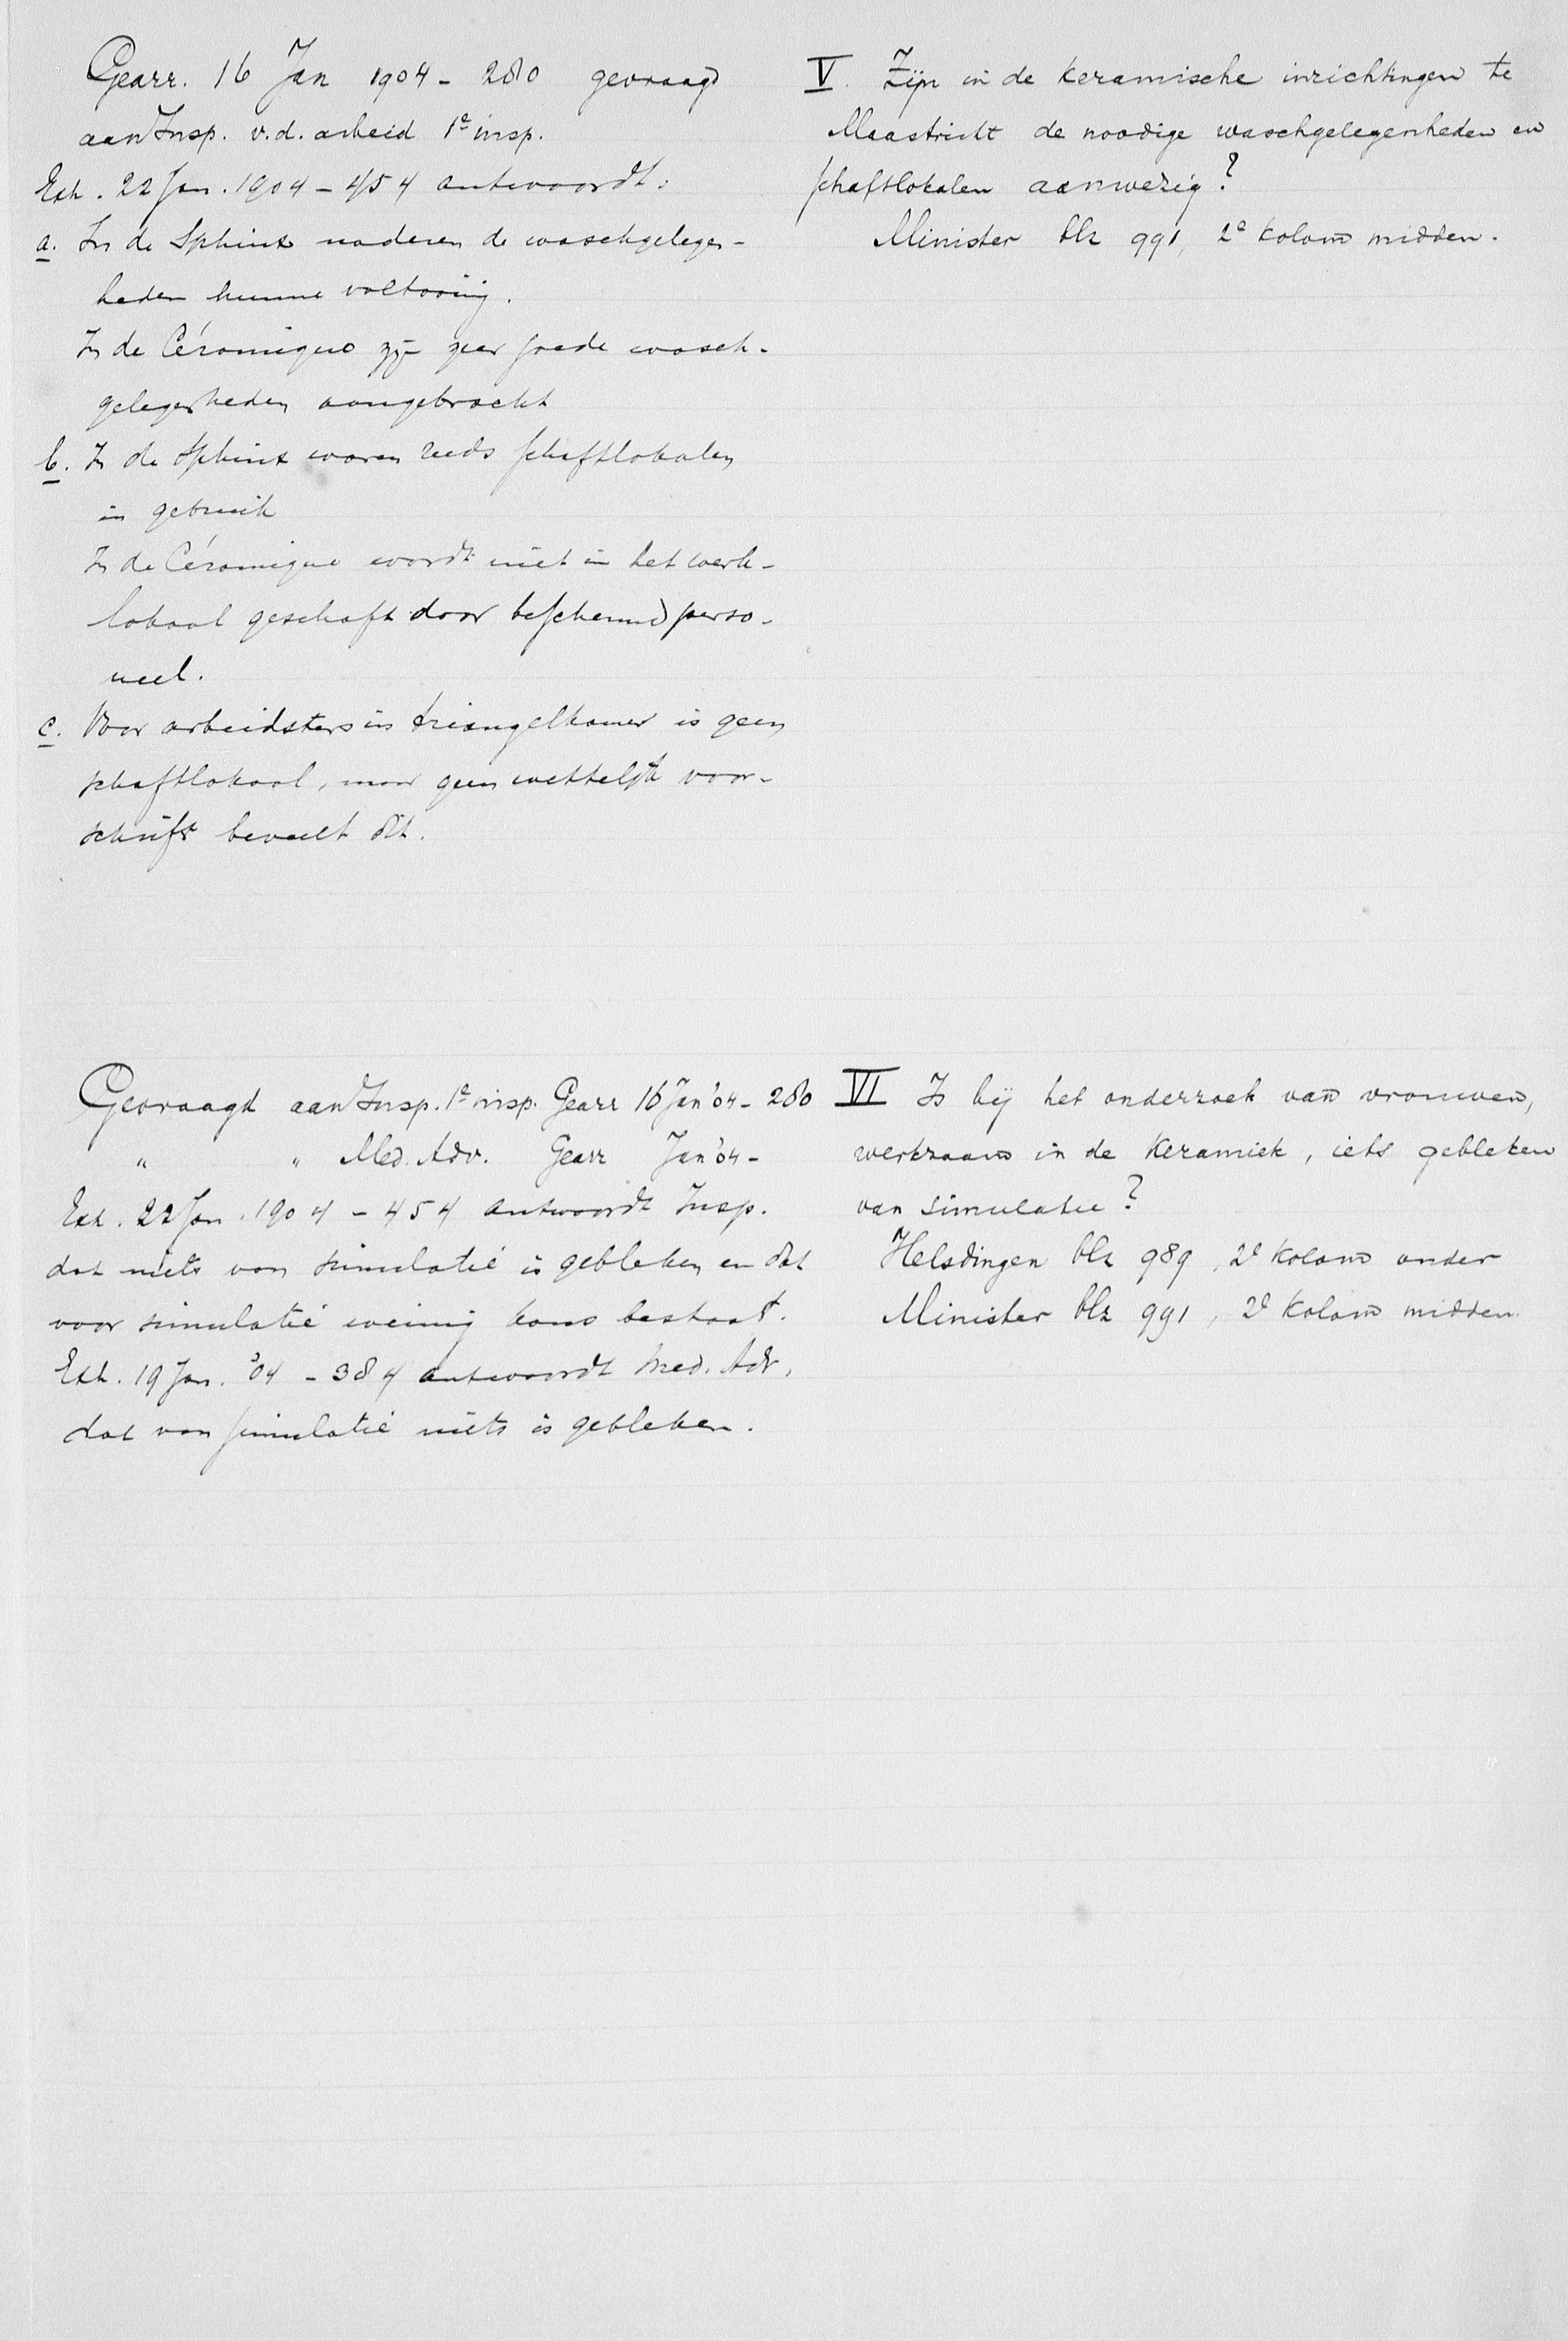 Gearr. 16 Jan 1904 - 280 gevraagd
aan Insp. v.d. arbeid 1e insp.
Exh. 22 Jan. 1904 - 454 antwoordt:
a. In de Sphinx naderen de waschgelegen-
heden hunne voltooiing.
In de Céramique zijn zeer goede wasch-
gelegenheden aangebracht
b. In de Sphinx waren reeds schaftlokalen
in gebruik
In de Céramique wordt niet in het werk-
lokaal geschaft door beschermd perso-
neel.
c. Voor arbeidsters in triangelkamer is geen
schaftlokaal, maar geen wettelijk voor-
schrift beveelt dit.
V. Zijn in de keramische inrichtingen te
Maastricht de noodige waschgelegenheden en
schaftlokalen aanwezig?
Minister blz 991, 2e kolom midden.
Gevraagd aan Insp. 1e insp. Gearr 16 Jan '04 - 280
" " Med. Adv. Gearr Jan '04 -
Exh. 22 Jan. 1904 - 454 antwoordt Insp.
dat niets van simulatie is gebleken en dat
voor simulatie weinig kans bestaat.
Exh. 19 Jan. '04 - 384 antwoordt Med. Adv.
dat van simulatie niets is gebleken.
VI Is bij het onderzoek van vrouwen,
werkzaam in de Keramiek, iets gebleken
van simulatie?
Helsdingen blz 989, 2e kolom onder
Minister blz 991, 2e kolom midden.